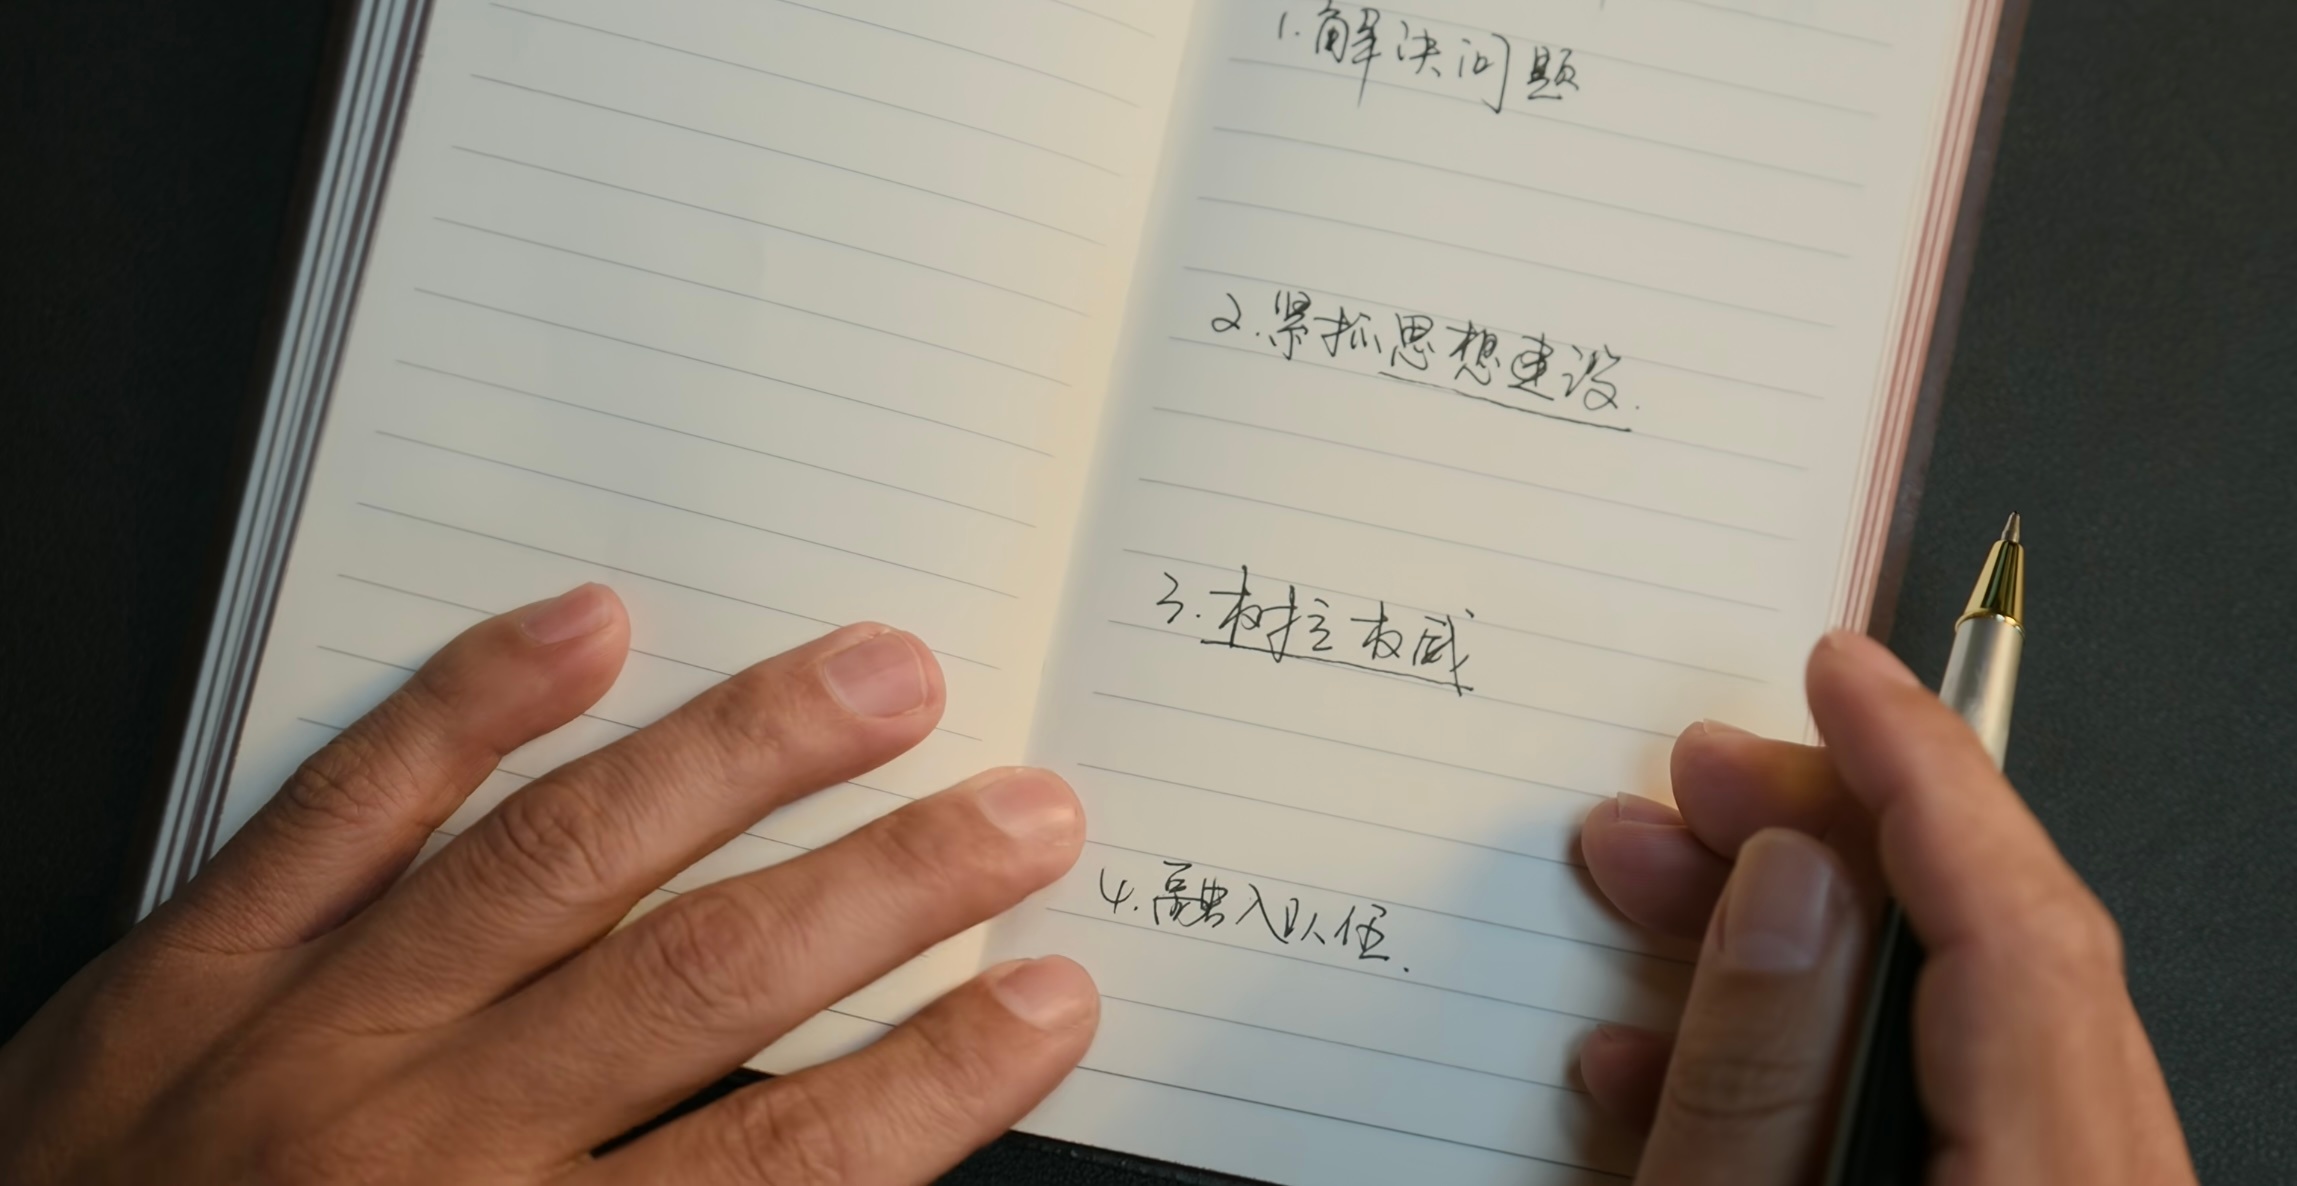 1.解决问题
2.紧抓思想建设.
3.树立权威
4.融入队伍.